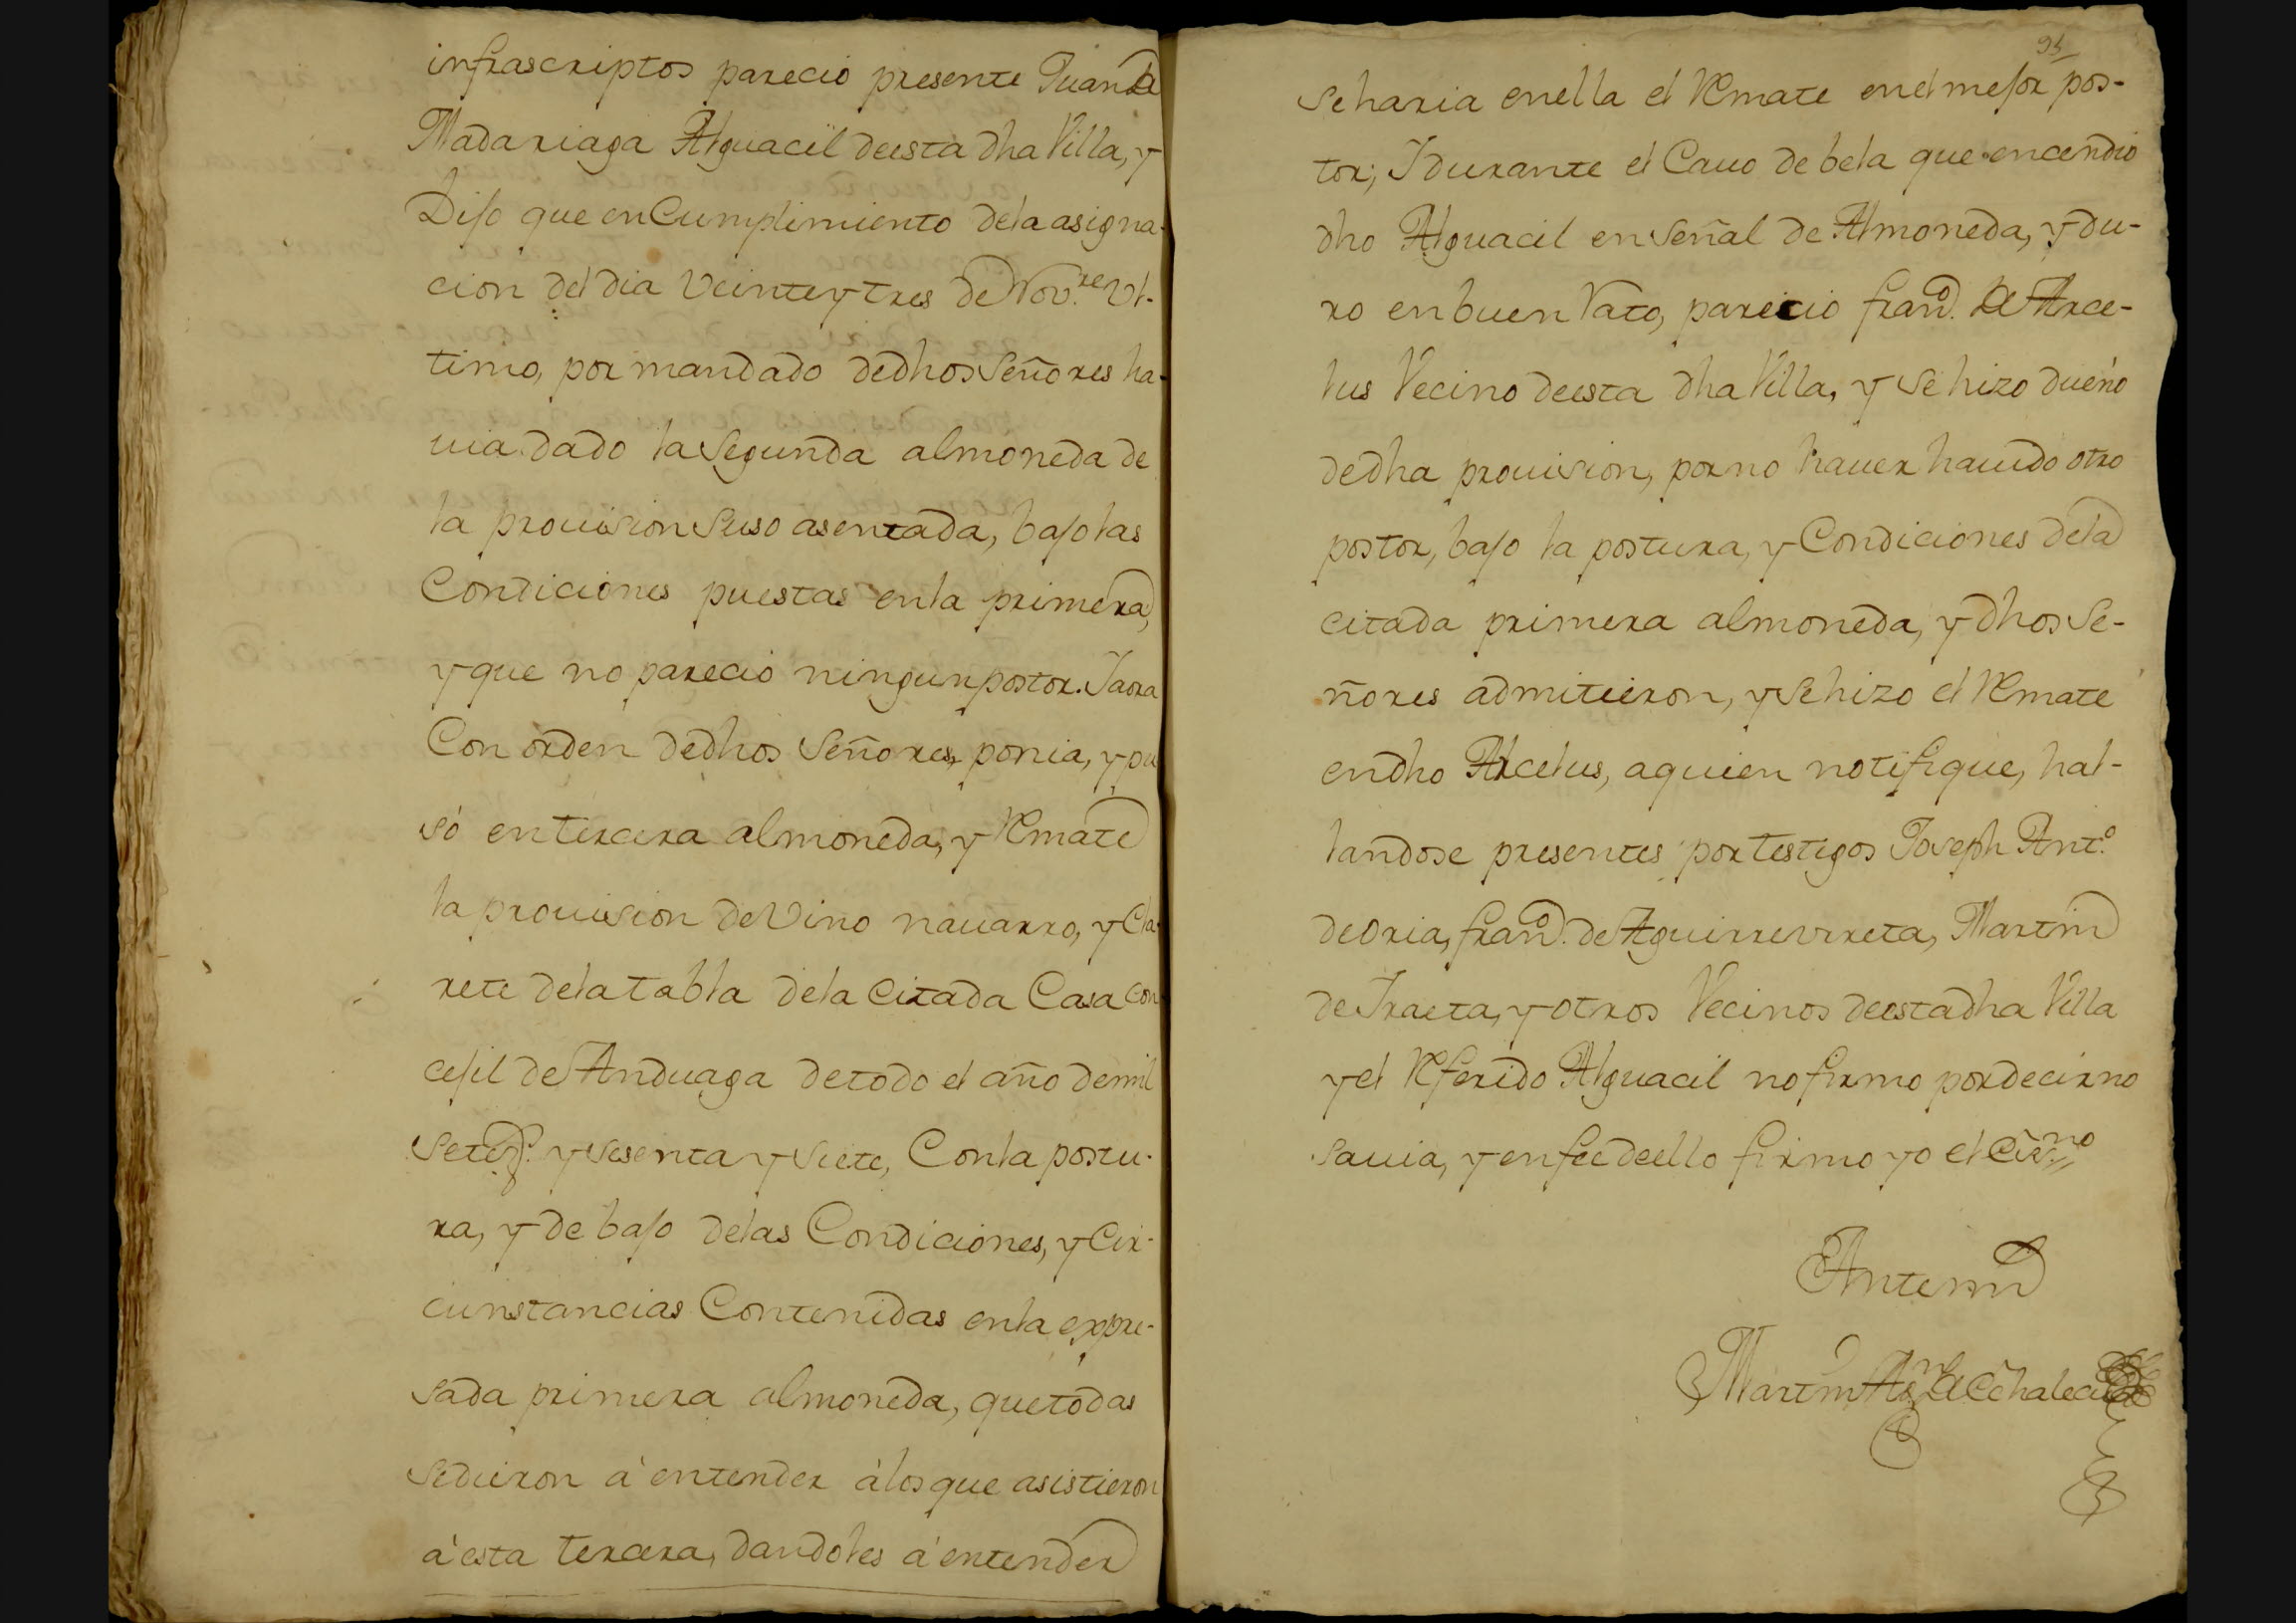 infrascriptos parecio presente Juan de
Madariaga Alguacil deesta dha Villa, y
Dijo que en Cumplimiento dela asigna-
cion del dia Veinte y tres de Nov.re Ul-
timo, por mandado dedhos Señores ha-
uia dado la Segunda almoneda de
la prouision Suso asentada, bajo las
Condiciones puestas enla primera,
y que no parecio ningun postor. Jaora
Con orden dedhos Señores, ponia, y pu
só en tercera almoneda, y Remate
la prouision de Vino nauarro, y Cla-
rete dela tabla dela citada Casa con-
cejil de Anduaga detodo el año de mil
Setez.s y sesenta y Siete, Con la postu-
ra, y de bajo delas Condiciones, y Cir-
cunstancias Contenidas en la expre-
sada primera almoneda, que todas
sedieron á entender álos que asistieron
á esta tercera, dandoles á entender
95
Seharia enella el Remate enel mejor pos-
tor; J durante el Cauo de bela que encendio
dho Alguacil en señal de Almoneda, y du-
ro en buen Rato, parecio fran.co de Arce-
lus Vecino deesta dha Villa, y Se hizo dueño
dedha prouision, por no hauer hauido otro
postor, bajo la postura, y Condiciones dela
citada primera almoneda, y dhos Se-
ñores admitieron, y Se hizo el Remate
endho Arcelus, aquien notifique, hal-
landose presentes por testigos Joseph Ant.o
de Oria, fran.co de Aguirrevrreta, Martin
de Jraeta, y otros Vecinos deesta dha Villa
y el Referido Alguacil no firmo por decir no
sauia, y en fee deello firmo yo el Ess.no
Antemi
Martin As.n de Echalecu